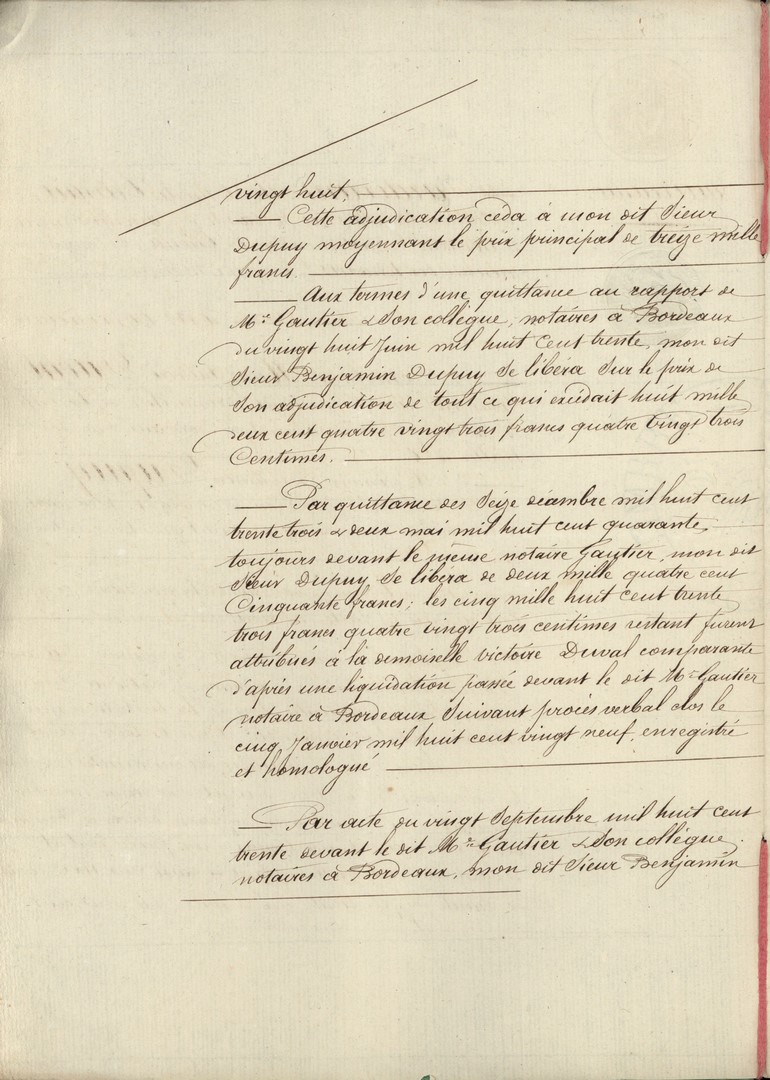 vingt huit.
Cette adjudication ceda à mon dit Sieur
Dupuy moyennant le prix principal de treize mille
francs.
Aux termes d'une quittance au rapport de
Me Gautier & Son collègue, notaires à Bordeaux
du vingt huit Juin mil huit Cent trente, mon dit
Sieur Benjamin Dupuy Se libéra Sur le prix de
Son adjudication de tout ce qui excédait huit mille
deux cent quatre vingt trois francs quatre vingt trois
Centimes.
Par quittance des Seize décembre mil huit cent
trente trois & deux mai mil huit cent quarante,
toujours devant le même notaire Gautier, mon dit
Sieur Dupuy Se libéra de deux mille quatre cent
Cinquante francs; les cinq mille huit Cent trente
trois francs quatre vingt trois centimes restant furent
attribués à la demoiselle Victoire Duval comparante
d'après une liquidation passée devant le dit Me Gautier
notaire à Bordeaux Suivant procès verbal clos le
cinq Janvier mil huit cent vingt neuf, enregistré
et homologué
Par acte du vingt Septembre mil huit cent
trente devant le dit Me Gautier & Son collègue,
notaires à Bordeaux, mon dit Sieur Benjamin